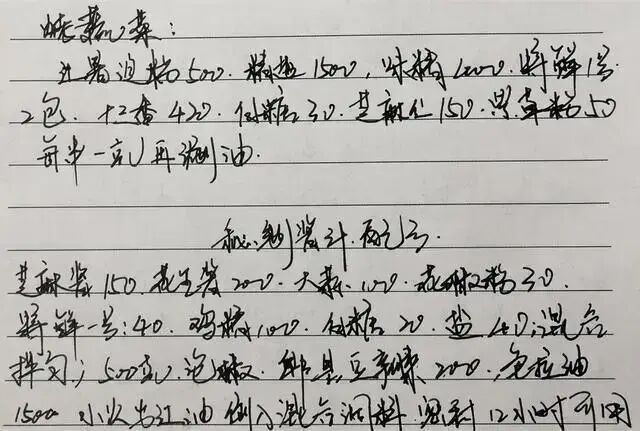 蘸菜:
孜然粉500. 精盐1500, 味精1000. 鲜1号
2包. 十三香420. 白糖30. 芝麻仁150. 黑草粉50
每半一 再 油.
秘制酱汁.配方.
芝麻酱150. 花生酱200. 大蒜100. 花椒粉30.
鲜一号:40. 鸡精100. 白糖20. 盐40,混合
拌匀; 500克. 泡椒. 郫县豆瓣酱200. 色拉油
1500 小火 油倒入混合调料. 密封12小时可用